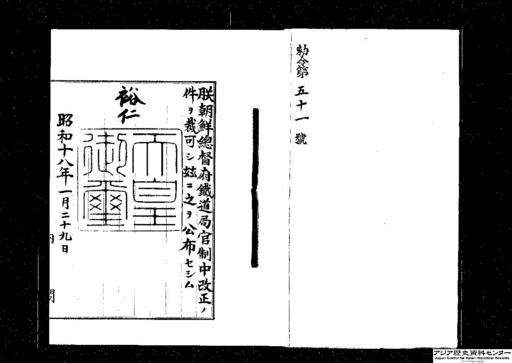 勅令第五十一號
朕朝鮮總督府鐵道局官制中改正ノ
件ヲ裁可シ玆ニ之ヲ公布セシム
裕仁
天皇御璽
昭和十八年一月二十九日
内閣
アジア歴史資料センター
Japan Center for Asian Historical Records